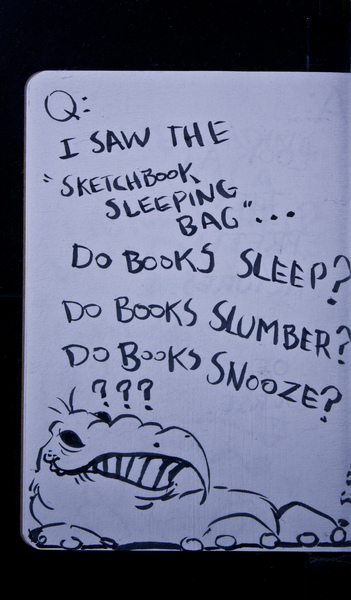 Q:
I SAW THE
"SKETCHBOOK
SLEEPING
BAG"...
DO BOOKS SLEEP?
DO BOOKS SLUMBER?
DO BOOKS SNOOZE?
???